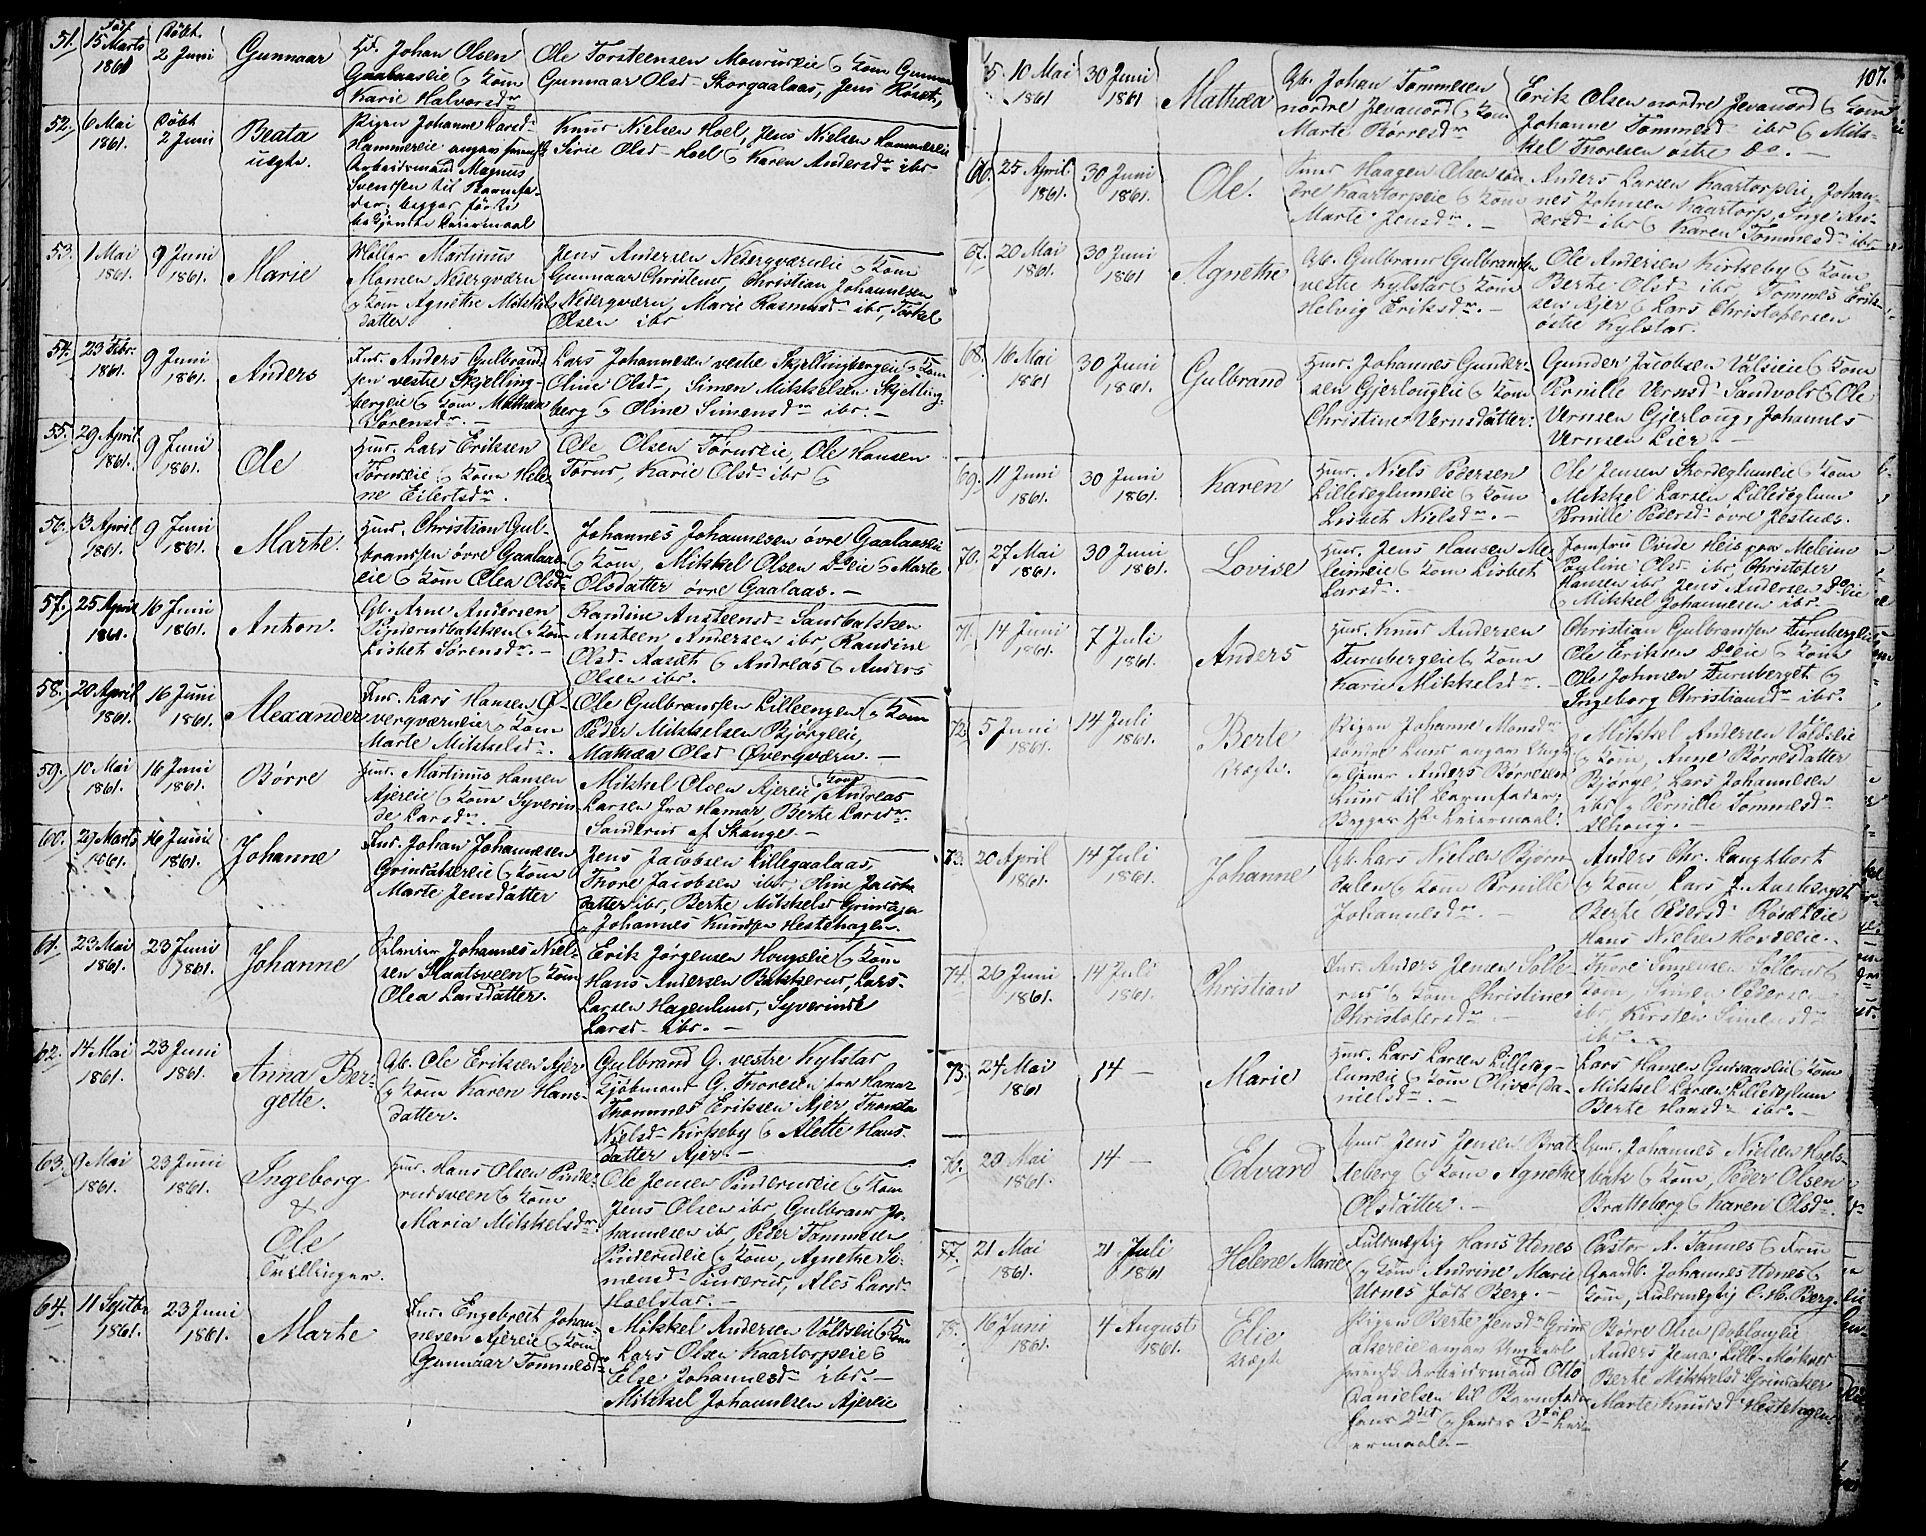 51. Født 15 Marts 1861
Døbt. 2 Juni
Gunnaar
Hd. Johan Olsen
Gaalaaseie & Kone
Karie Halvorsdr
Ole Torsteensen
Gunnaar Olsd Skorgaalaas, Jens
52. 6 Mai 1861.
Døbt 2 Juni
Beata
uægte.
Pigen Johanne Larsdr
Hammereie angav
Arbeidsmand Magnus
Svendsen til Barnefa-
der; begges første
bekjendte Leiermaal
Knud Nielsen Hoel, Jens Nielsen Hammereie
Sirie Olsd Hoel & Karen Andersdr ibd
53. 1 Mai 1861.
9 Juni 1861.
Marie
Møller Martinus
Monsen Nedergværn
& Kone Agnethe Mikkels
datter
Jens Andersen Nedergværneie & Kone
Gunnaar Christensd, Christian Johannesen
Nedergværn, Marie Rasmusd ibd, Torkel
Olsen ibd
54. 23 Febr. 1861.
9 Juni 1861.
Anders
Ind. Anders Gulbrand
sen vestre Skjelling-
bergeie & Kone Mathea
Sørensdr. —
Lars Johannesen vestre Skjellingbergeie & Kone
Oline Olsd, Simen Mikkelsen Skjelling-
berg & Oline Simensdr ibd. —
55. 29 April 1861.
9 Juni 1861.
Ole
Hmd. Lars Eriksen
Torudeie & Kone Hele-
ne Eilertsdr.
Ole Olsen Torudeie, Ole Hansen
Torud, Karie Olsd ibd &
56. 13 April 1861.
9 Juni 1861.
Marthe.
Hmd. Christian Gul-
brandsen øvre Gaalaas-
eie & Kone Olea Olsdr
Johannes Johannesen øvre Gaalaaseie
& Kone, Mikkel Olsen Doeie & Marte
Olsdatter øvre Gaalaas. —
57. 25 April 1861.
16 Juni 1861.
Anton.
Gb. Arne Andersen
& Kone
Lisbet Sørensdr. —
Randine Ansteensd Sandbakken
Ansteen Andersen ibd, Randine
Olsd Aaset & Andreas & Anders
Olsen ibd.
58. 20 April 1861.
16 Juni 1861.
Alexander
Ind. Lars Hansen Ø-
vergværneie & Kone
Marte Mikkelsdr.
Ole Gulbrandsen Lilleengen & Kone
Peder Mikkelsen Bjørgeeie
Mathea Olsd Øvergværn. —
59. 10 Mai 1861.
16 Juni 1861.
Børre
Hmd. Martinus Hansen
Ajereie & Kone Syverin
de Larsdr.
Mikkel Olsen Ajereie, Kone, Andreas
Larsen fra Hamar, Berte Larsdr
Sanderud af Stange —
60. 29 Marts 1861.
16 Juni 1861.
Johanne
Ind. Johan Johannesen
Grindakereie & Kone
Marte Jensdatter
Jens Jacobsen Lillegaalaas,
Thore Jacobsen ibd, Oline Jacobs
datter ibd, Berte Mikkelsd Grindager
& Johannes Knudsen Hestehagen.
61. 23 Mai 1861.
23 Juni 1861.
Johanne
Johannes Niel-
sen Slaatsveen & Kone
Olea Larsdatter.
Erik Jørgensen Hougseie & Kone
Hans Andersen Bakkerud, Lars
Larsen Hagenlund, Syverinde
Larsd ibd. —
62. 14 Mai 1861.
23 Juni 1861.
Anna Ber-
gette.
Gb. Ole Eriksen Ajer
& Kone Karen Hans-
datter.
Gulbrand G. vestre Kylstad
Kjøbmand G. Thoresen fra Hamar
Thommes Eriksen Ajer,
Nielsd Kirkeby & Alette Hans
datter Ajer. —
63. 9 Mai 1861.
23 Juni 1861.
Ingeborg
&
Ole
Tvillinger.
Hmd. Hans Olsen Pinde-
rudsveen & Kone
Maria Mikkelsdr
Ole Jensen Pinderudeie & Kone
Jens Olsen ibd, Gulbrand Jo-
hannesen ibd, Peder Tommesen
Pinderudeie & Kone, Agnethe Si-
mensd Pinderud, Ales Larsd
Hoelstad. —
64. 11 Septbr 1861.
23 Juni 1861.
Marthe
Ind. Engebret Johan-
nesen Ajereie & Kone
Gunnaar Tommesdr
Mikkel Andersen Voldseie & Kone
Lars Olsen Kaartorpeie &
Else Johannesd ibd. —
Mikkel Johannesen Ajereie
107.
5. 10 Mai 1861
30 Juni 1861
Mathea
Gb. Johan Tommesen
nordre Jevanord & Kone
Marte Børresdr
Erik Olsen nordre Jevanord & Kone
Johanne Tommesd ibd & Mik-
kel Thoresen østre Do. —
66. 25 April 1861.
30 Juni 1861.
Ole.
Haagen Olsen søn
dre Kaartorpeie & Kone
Marte Jensdr. —
Anders Larsen Kaartorpeie, Johan-
nes Johnsen Kaartorp, Inge An-
dersd ibd & Karen Tommesdr ibd
67. 20 Mai 1861.
30 Juni 1861
Agnethe
Gb. Gulbrand Gulbrandsen
vestre Kylstad & Kone
Helvig Eriksdr. —
Ole Andersen Kirkeby & Kone
Berte Olsd ibd Tommes Erik-
sen Ajer & Lars Christophersen
østre Kylstad.
68. 16 Mai 1861
30 Juni 1861.
Gulbrand
Hmd. Johannes Gunder-
sen Gjerlougeie & Kone
Christine Vermsdatter.
Gunder Jacobsen Valseie & Kone
Pernille Vermsd Sandvold & Ole
Vermsen Gjerloug, Johannes
Vermsen Lier. —
69. 11 Juni 1861.
30 Juni 1861.
Karen
Hmd. Niels Pedersen
Lilleeglumeie & Kone
Lisbet Nielsdr. —
Ole Jensen Storeeglumeie & Kone
Mikkel Larsen Lilleeglum
Pernille Pedersd øvre Jestnes.
70. 27 Mai 1861.
30 Juni 1861.
Lovise
Hmd. Jens Hansen Me-
leimeie & Kone Lisbet
Larsdr.
Jomfru Meleim
Pauline Olsd ibd Christofer
Hansen ibd Jens Andersen Doeie
& Mikkel Johannesen ibd.
71. 14 Juni 1861.
7 Juli 1861.
Anders
Hmd. Knud Andersen
Furubergeie & Kone
Karie Mikkelsdr. —
Christian Gulbrandsen Furubergeie
Ole Eriksen Doeie & Kone
Ole Johnsen Furuberget &
Ingeborg Christiansdr ibd.
72. 5 Juni 1861.
14 Juli 1861.
Berte
Uægte.
Pigen Johanne Monsdr
søndre Lund angav Ungk.
& Gmd Anders Børresen
Lund til Barnefader;
Begges 1ste Leiermaal.
Mikkel Andersen Voldseie
& Kone, Anne Børresdatter
Bjørge, Lars Johannesen
ibd & Pernille Tommesdr
73. 20 April 1861.
14 Juli 1861.
Johanne
Gb. Lars Nielsen Bjørn-
dalen & Kone Pernille
Johannesdr. —
Anders Chr. Langkbort
& Kone, Lars Aasberget
Berte Pedersd
Hans Nielsen Hovdeeie.
74. 26 Juni 1861.
14 Juli 1861.
Christian
Ind. Anders Jensen Solle-
rud & Kone Christine
Christofersdr —
Thore Simensen Sollerud &
Kone, Simen Pedersen
ibd, Kirsten Simensdr
ibd. —
75. 24 Mai 1861
14 —
Marie
Hmd. Lars Larsen Lilleeg-
lumeie & Kone Olive Da-
nielsdr. —
Lars Hansen & Kone
Mikkel Larsen Lilleeglum
Berte Hansdr ibd. —
76. 29 Mai 1861.
14 —
Edvard
Hmd Jens Jensen Brat-
teberg & Kone Agnethe
Olsdatter. —
Hmd. Johannes Nielsen Hoels-
bak & Kone, Peder Olsen
Bratteberg & Karen Olsdr.
77. 21 Mai 1861.
21 Juli 1861
Helene Marie
Fuldmægtig Hans Udnes
& Kone Andrine Marie
Udnes født Berg. —
Pastor A. Fannes & Frue
Gaardb. Johannes Udnes &
Kone, Fuldmægtig C. M. Berg.
78. 16 Juni 1861.
4 August 1861.
Elie
Uægte
Pigen Berte Jensdr Grind
akereie angav Ungkarl
Arbeidsmand Otto
Danielsen til Barnefader
hans 2det & hendes 3die Lei-
ermaal. —
Børre Olsen
Anders Jensen Lille-
Berte Mikkelsd Grindaker
Marte Knudsd Hestehagen